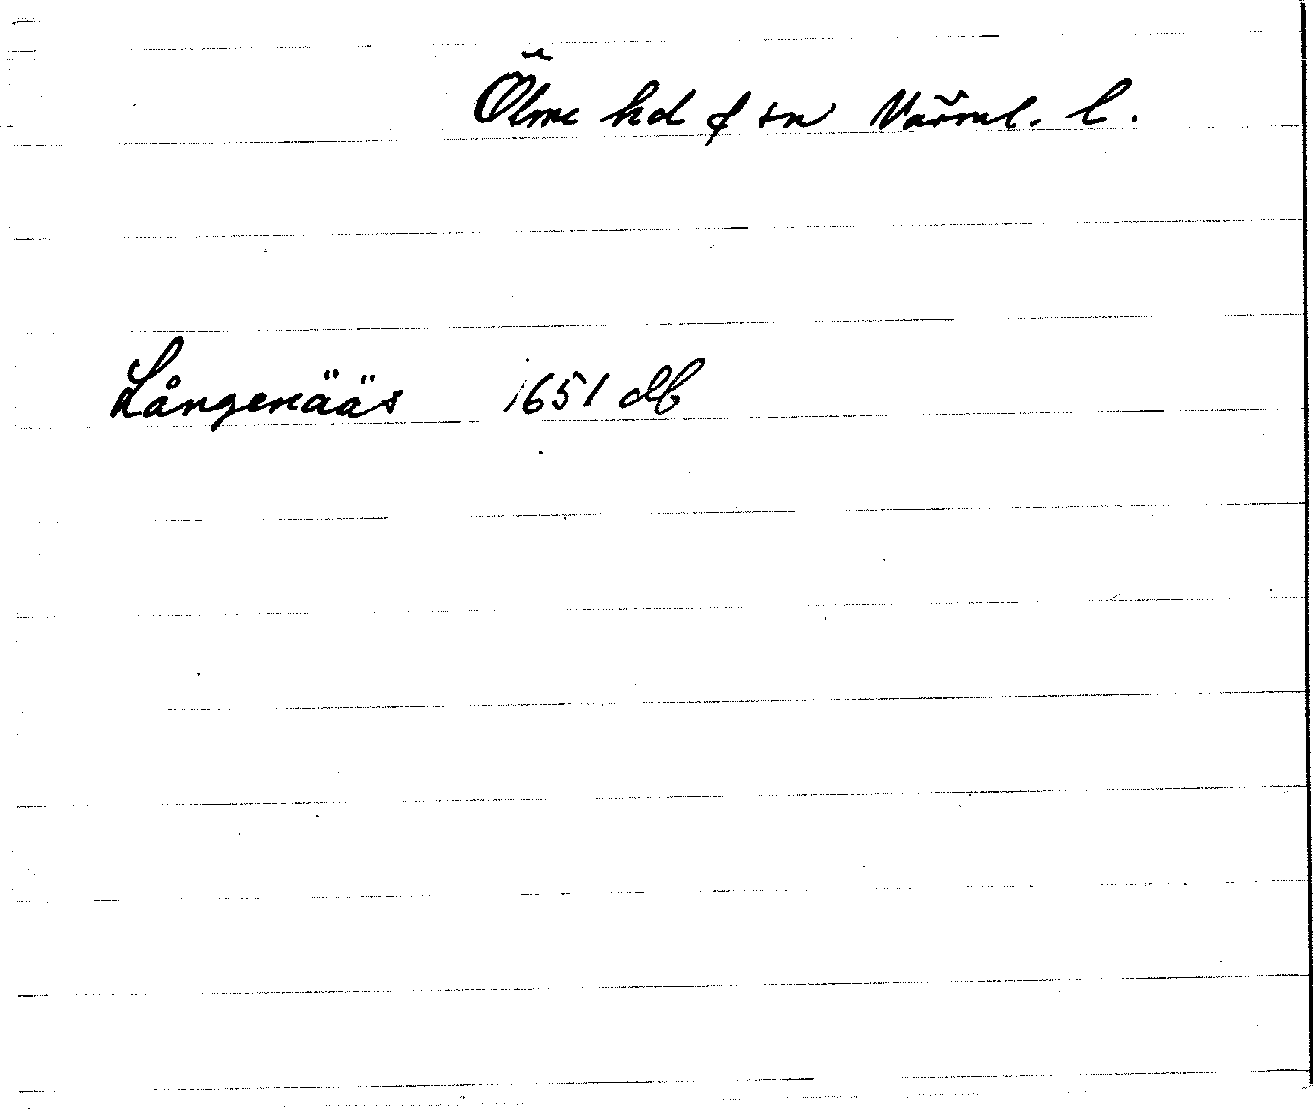 Ölme hd & sn Värml. l.
Långenääs 1651 db